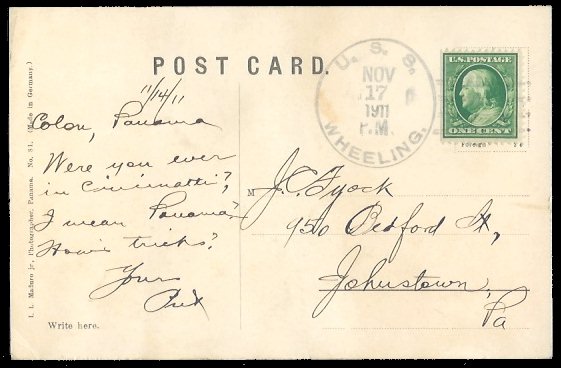 POST CARD.
11/14/11
Colon, Panama
Were you ever
in Cincinnatti?,
I mean Panama?
How's tricks?
Yours
Write here.
I. L. Maduro jr., Photographer, Panama. No. 81. (Made in Germany.)
U. S. S.
NOV
17
1911
P.M.
WHEELING.
U.S. POSTAGE
ONE CENT
M J.C. Fyock
950 Bedford St,
Johnstown,
Pa